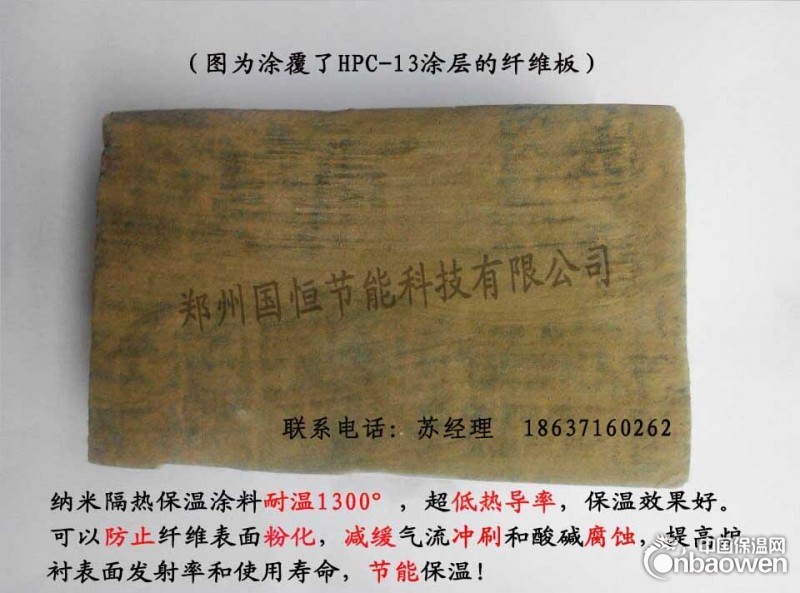 （图为涂覆了HPC-13涂层的纤维板）
郑州国恒节能科技有限公司
联系电话：苏经理 18637160262
纳米隔热保温涂料耐温1300°，超低热导率，保温效果好。
可以防止纤维表面粉化，减缓气流冲刷和酸碱腐蚀，提高炉
衬表面发射率和使用寿命，节能保温！
中国保温网
cnbaowen